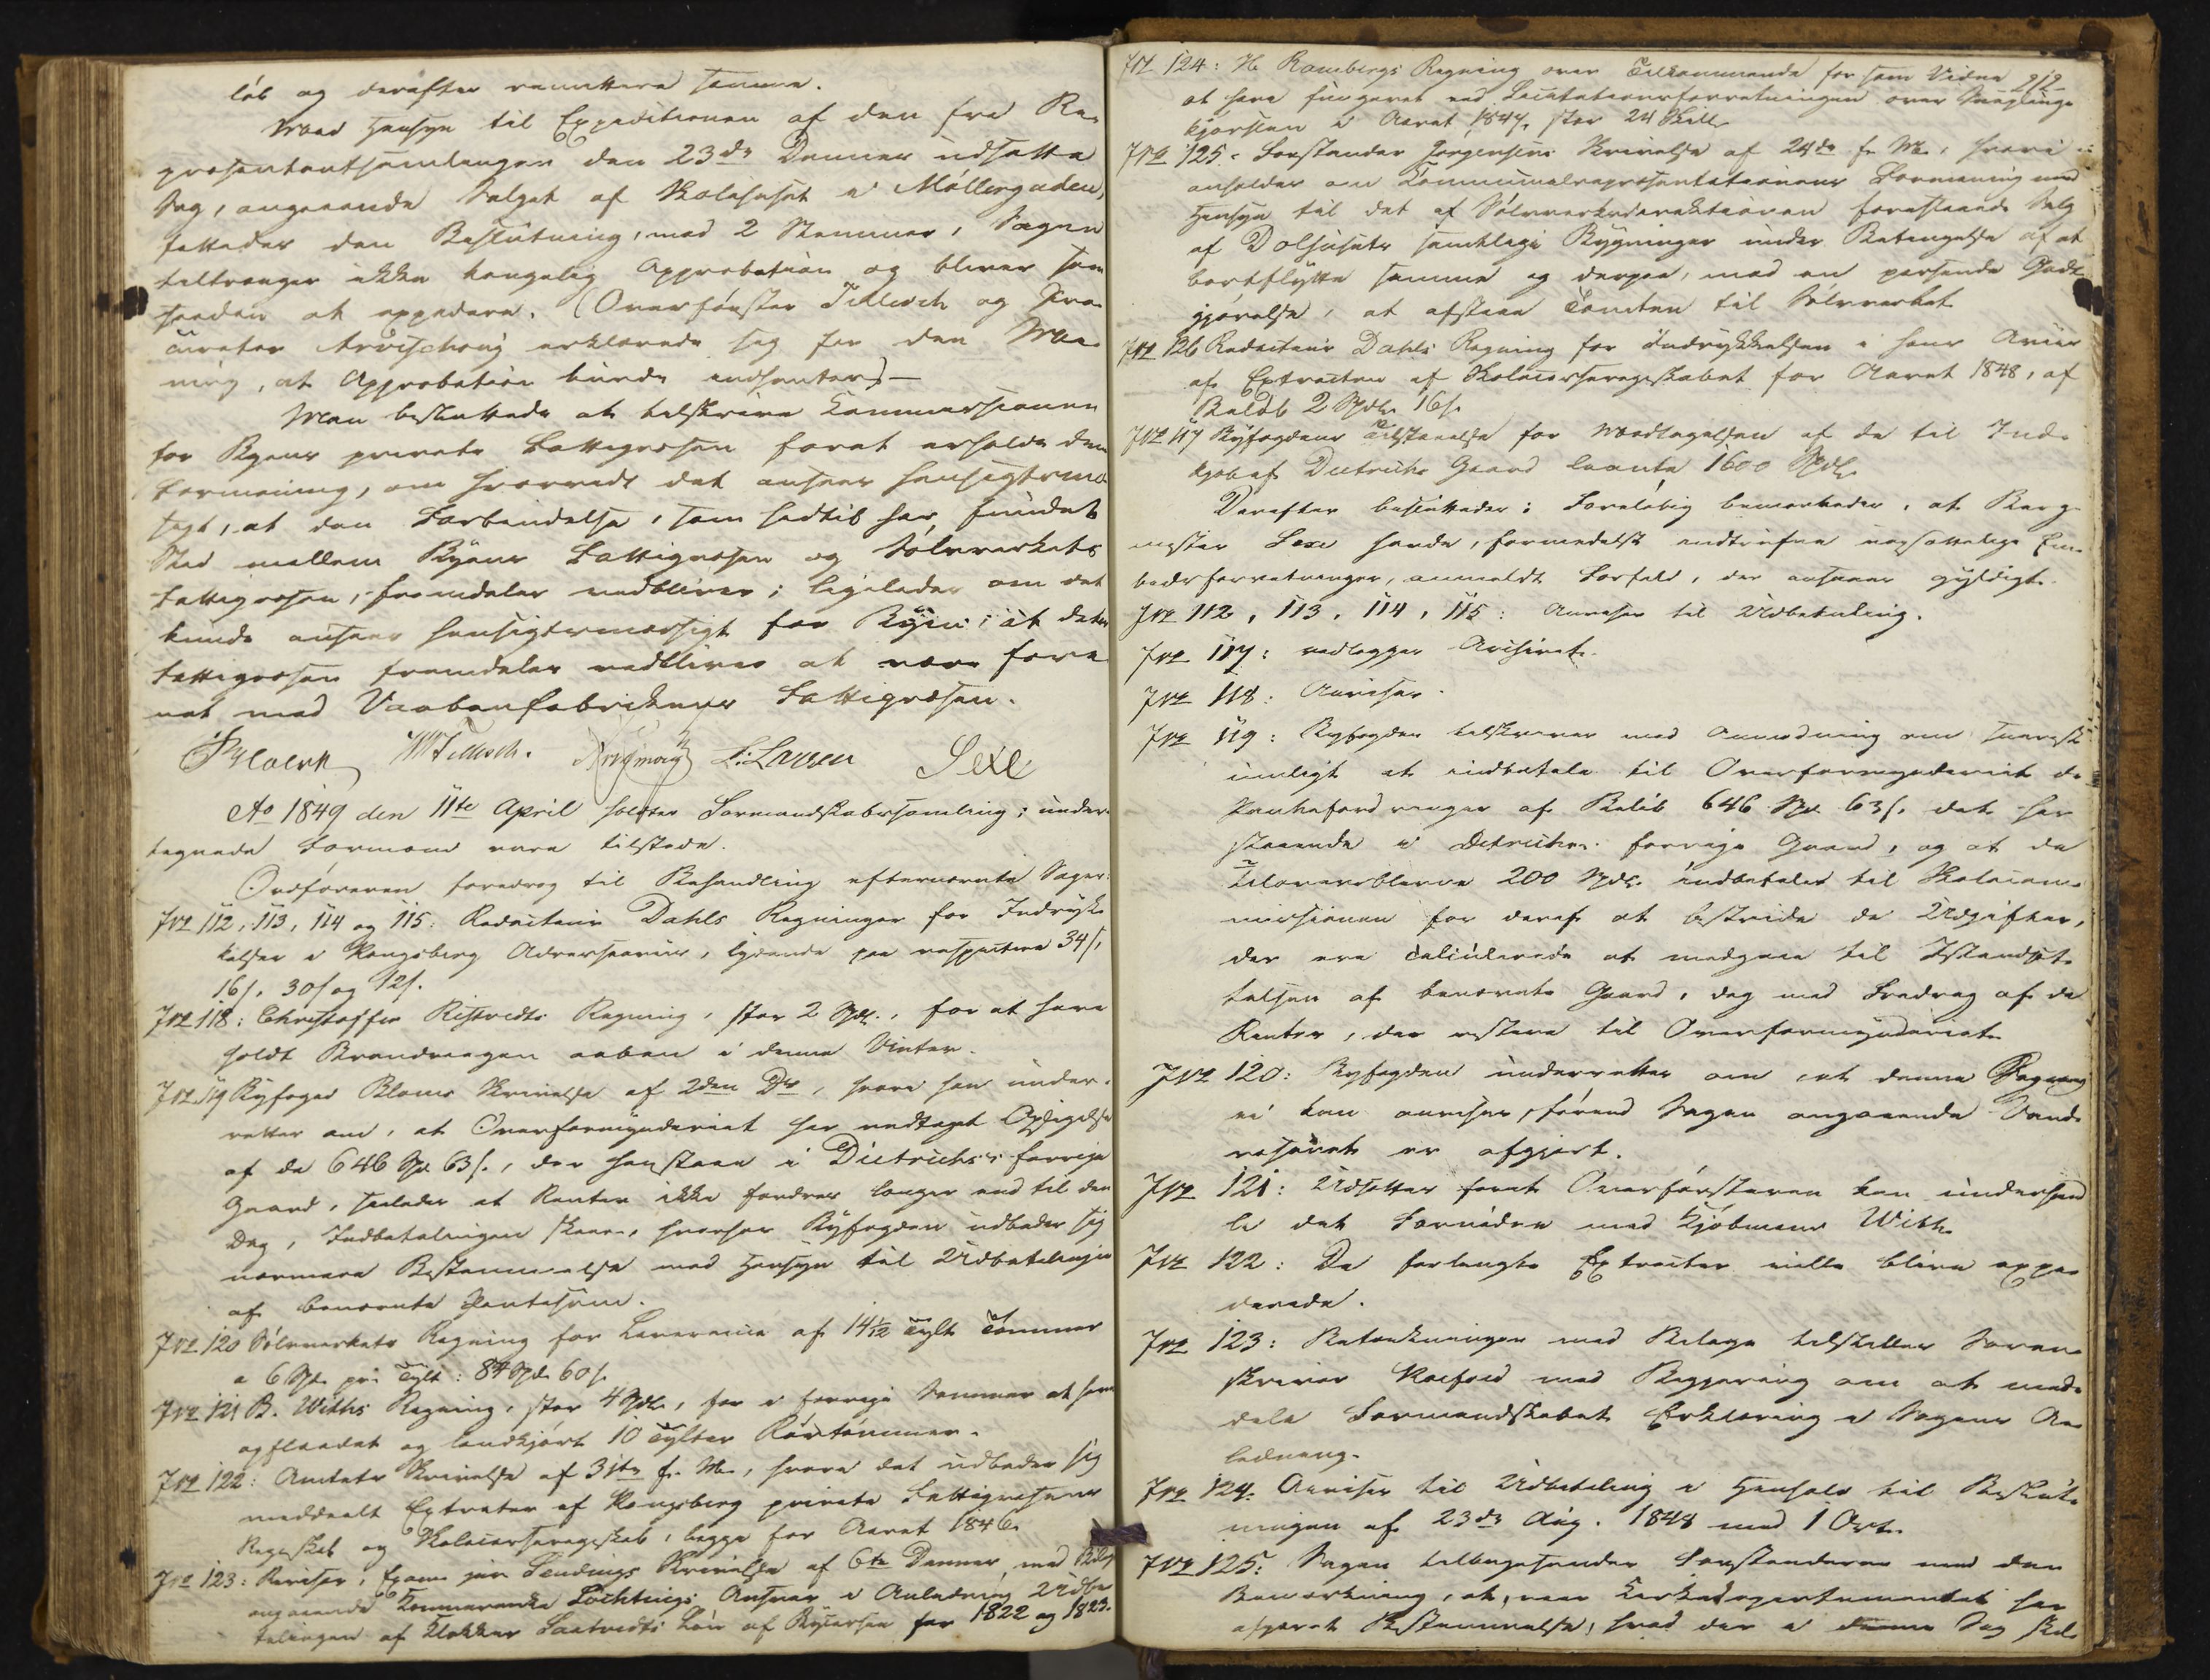 løb og derefter remittere samme.
Med Hensyn til Expeditionen af den fra Re-
præsentantsamlingen den 23de Dennes udsatte
Sag, angaaende Salget af Skolehuset i Møllergaden,
fattedes den Beslutning, med 2 Stemmer, Sagen
tiltrænger ikke kongelig Approbation og bliver som
saadan at expedere. (Overførster Tillisch og Pro-
curator Arvischoug erklærede sig for den Me-
ning, at Approbation burde indhentes) —
Man besluttede at tilskrive Commissionen
for Byens private Fattigvæsen forat erholde dens
Formening, om hvorvidt det ansees hensigtsmæs-
sigt, at den Forbindelse, som hidtil har fundet
Sted mellem Byens Fattigvæsen og Sølvverkets
Fattigvæsen, fremdeles vedbliver; ligeledes om det
kunde ansees hensigtsmæssigt for Byen, at dets
Fattigvæsen fremdeles vedbliver at være fore-
net med Vaabenfabrikens Fattigvæsen.
Tillisch. L. Larsen Sexe
Ao 1849 den 11te April holdtes Formandskabssamling; under-
tegnede Formænd vare tilstede.
Ordføreren foredrog til Behandling efternævnte Sager:
Jr 112, 113, 114 og 115: Redacteur Dahls Regninger for Indryk-
kelser i Kongsberg Adresseavis, lydende paa respective 34 s,
16 s, 30 s og 12 s.
Jr 118: Christoffer Ristvedts Regning, stor 2 Spd., for at have
holdt Brandvaagen aaben i denne Vinter.
Jr 119 Byfoged Bloms Skrivelse af 2den Ds, hvori han under-
retter om, at Overformynderiet har modtaget Opsigelse
af de 646 Spd 63 s., der henstaae i Dietrichs's forrige
Gaard, saaledes at Renten ikke fordres længer end til den
Dag, Indbetalingen skeer, hvorfor Byfogden udbeder sig
nærmere Bestemmelse med Hensyn til Udbetalingen
af benævnte Pantesum.
Jr 120 Sølvverkets Regning for Leverance af 14 1/12 Tylt Tømmer
a 6 Spd. pr. Tylt: 84 Spd 60 s.
Jr 121 B. Withs Regning, stor 4 Spd., for i forrige Sommer at have
opflaadet og landkjørt 10 Tylter Rørtømmer.
Jr 122: Amtets Skrivelse af 31te f. M., hvori det udbeder sig
meddeelt Extracter af Kongsberg private Fattigvæsens
Regnskab og Skolecasseregnskab, begge for Aaret 1846.
Jr 123: Revisor, Exam. jur. Sendings Skrivelse af 6te Dennes, med Bilag
angaaende Kæmneren Lochtings Ansvar i Anledning Udbe-
talingen af Klokker Saatvedts Løn af Bycassen for 1822 og 1823.
212
Jr 124: H. Rambergs Regning over Tilkommende for som Vidne
at have fungeret ved Licitationsforretningen over Vægtlings-
kjørslen i Aaret 1847, stor 24 Skill.
Jr 125: Forstander Jørgensens Skrivelse af 24de f. M., hvori
anholdes om Communalrepræsentationens Formening med
Hensyn til det af Sølvverksdirektionen foreslaaede Salg
af Dolhusets samtlige Bygninger under Betingelse af at
bortflytte samme og derpaa, med en passende Godt-
gjørelse, at afstaae Tomten til Sølvverket.
Jr 126 Redacteur Dahls Regning for Indrykkelsen i hans Avis
af Extracten af Skolecasseregnskabet for Aaret 1848, af
Beløb 2 Spd. 16 s.
Jr 117 Byfogdens Tilstaaelse for Modtagelsen af de til Ind-
kjøb af Dietrichs Gaard laante 1600 Spd.
Derefter besluttedes: Foreløbig bemærkedes, at Berg-
mester Sexe havde, formedelst indtrufne uopsættelige Em-
bedsforretninger, anmeldt Forfald, der ansees gyldigt.
Jr 112, 113, 114, 115: Anvises til Udbetaling.
Jr 117: vedlægges Archivet.
Jr 118: Anvises.
Jr 119: Byfogden tilskrives med Anmodning om snarest
muligt at indbetale til Overformynderiet de
Pantefordringer af Beløb 646 Spd. 63 s. det har
staaende i Dietrichs forrige Gaard, og at de
tiloversblevne 200 Spd. indbetales til Skolecom-
missionen for deraf at bestride de Udgifter,
der ere calculerede at medgaae til Istandsæt-
telsen af benævnte Gaard, dog med Fradrag af de
Renter, der restere til Overformynderiet.
Jr 120: Byfogden underrettes om at denne Regning
ei kan anvises, førend Sagen angaaende Vand-
væsenet er afgjort.
Jr 121: Udsættes forat Overførsteren kan underhand-
le det Fornødne med Kjøbmand With.
Jr 122: De forlangte Extracter ville blive expe-
derede.
Jr 123: Betænkningen med Bilage tilstilles Soren-
skriver med Begjæring om at med-
dele Formandskabet Erklæring i Sagens An-
ledning.
Jr 124. Anvises til Udbetaling i Henhold til Beslut-
ningen af 23de Aug. 1848 med 1 Ort.
Jr 125: Sagen tilbagesendes Forstanderen med den
Bemærkning, at, naar Kirkedepartementet har
afgivet Bestemmelse, hvad der i denne Sag skal